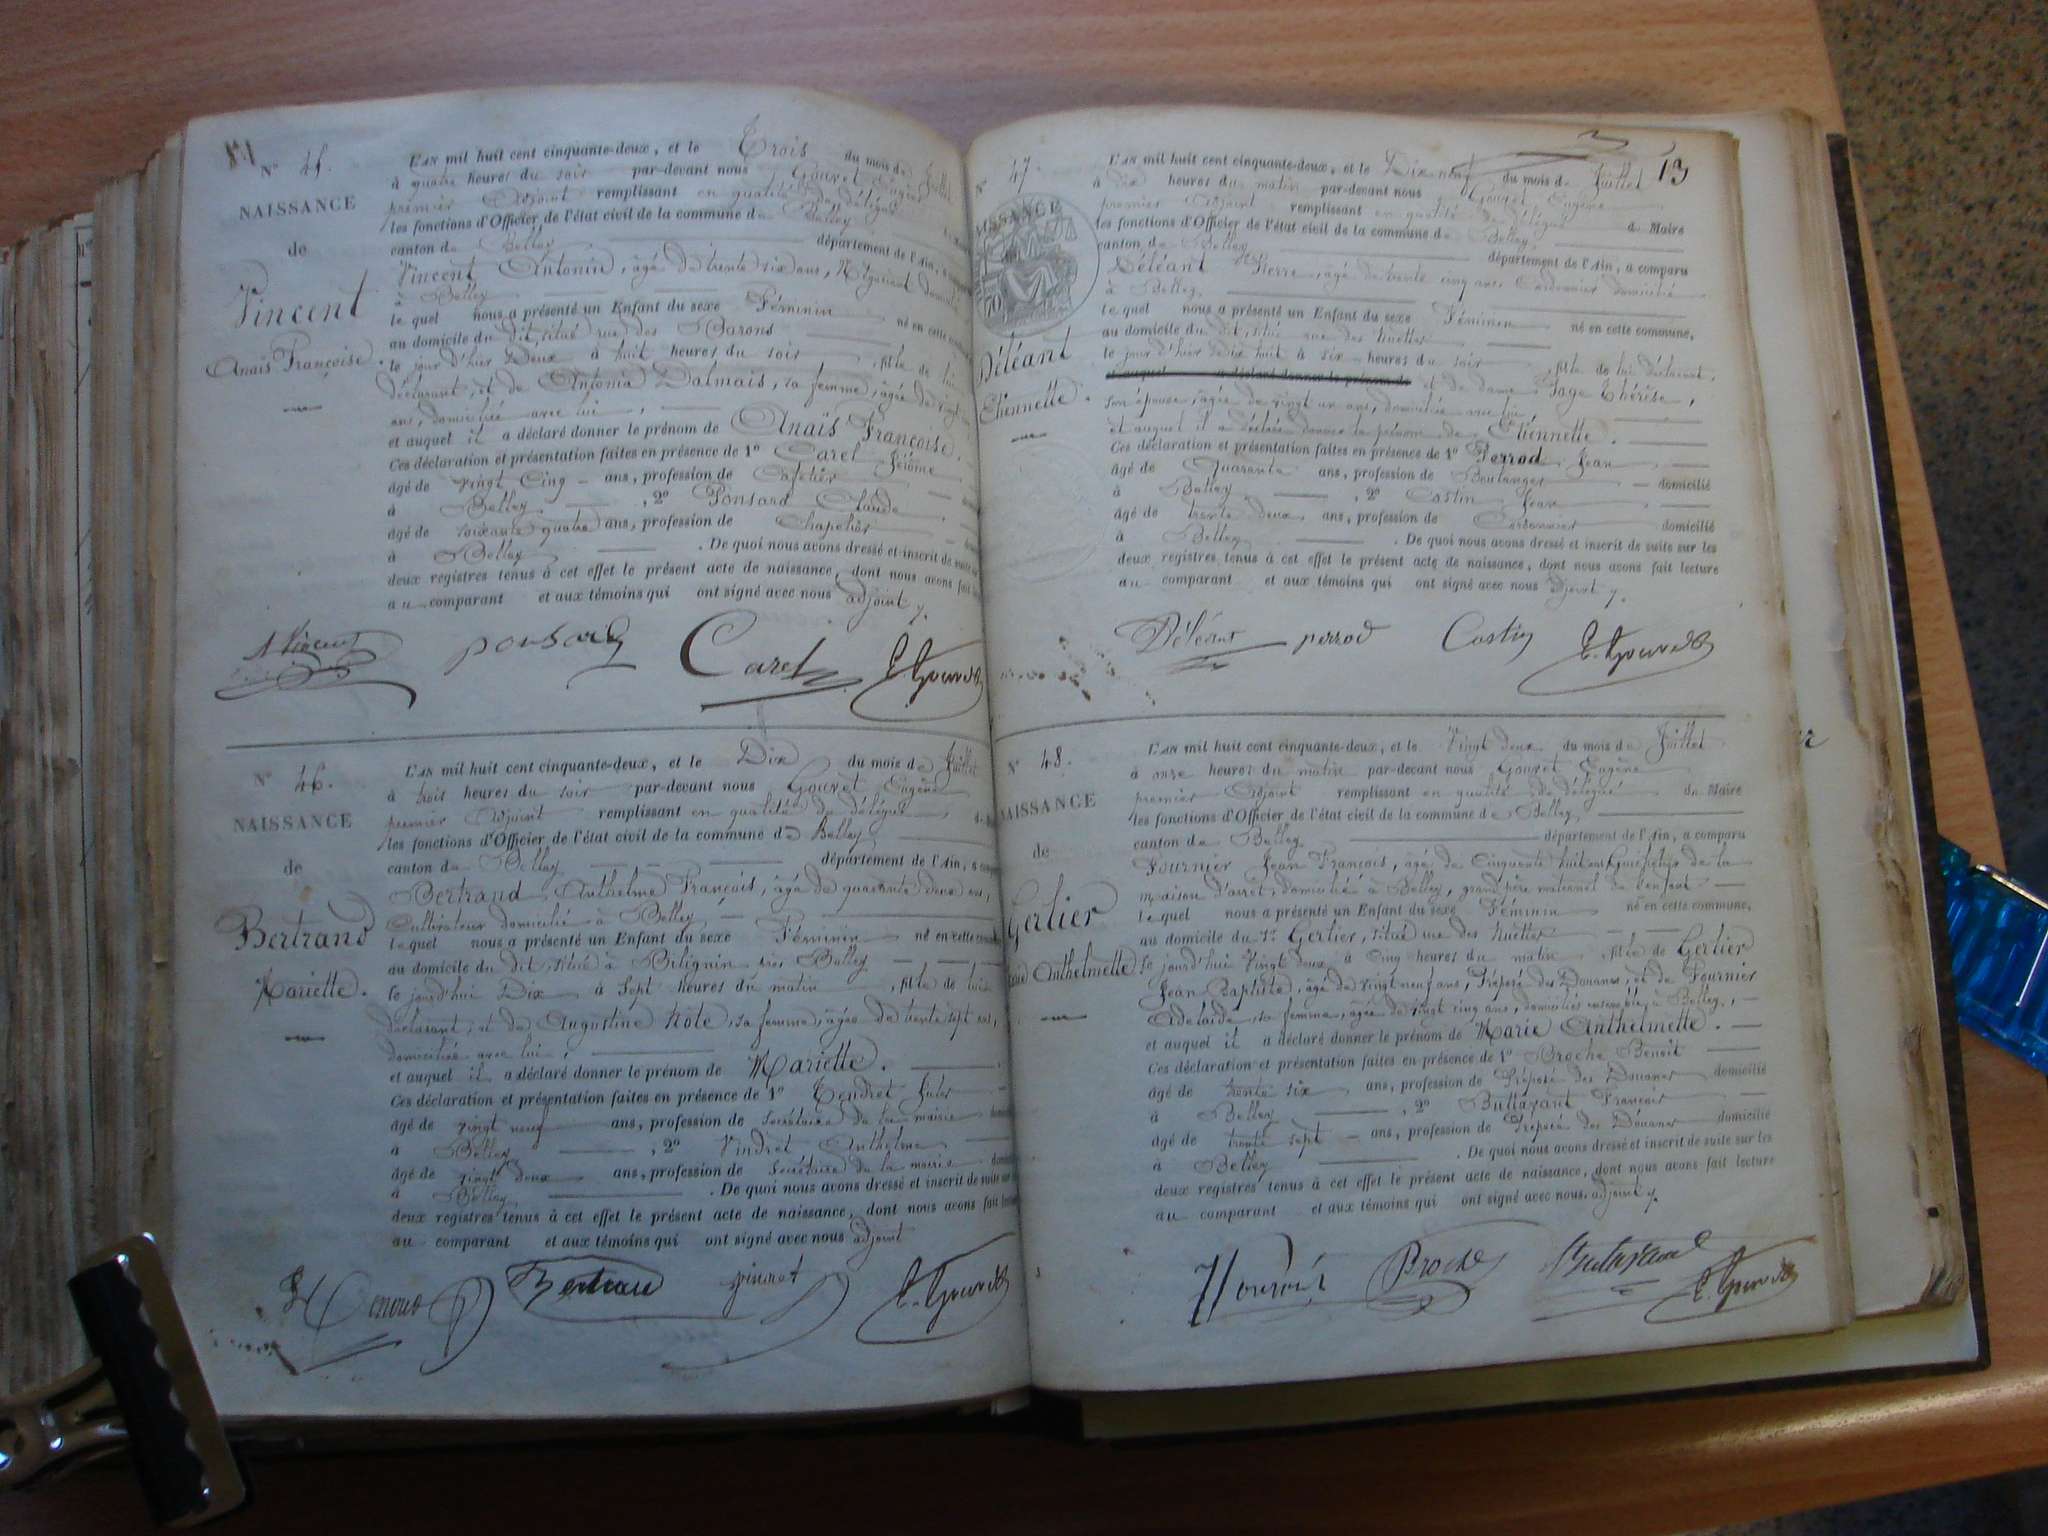 N° 45.
NAISSANCE
de
Vincent
Anaïs Françoise.
L'AN mil huit cent cinquante-deux, et le Trois du mois de Juillet
à quatre heures du soir par-devant nous Gouvet Eugène
premier Adjoint remplissant en qualité de délégué
les fonctions d'Officier de l'état civil de la commune de Belley
canton de Belley département de l'Ain, a
Vincent Antonin, âgé de trente six ans, Négociant
à Belley
lequel nous a présenté un Enfant du sexe Féminin né en cette
au domicile du dit, situé rue des Barons
le jour d'hier Deux à huit heures du soir, fille de lui
déclarant, et de Antonia Dalmais, sa femme, âgée de vingt
ans, domiciliée avec lui,
et auquel il a déclaré donner le prénom de Anaïs Françoise.
Ces déclaration et présentation faites en présence de 1° Carel Jérôme
âgé de vingt Cinq ans, profession de Cafetier
à Belley, 2° Ponsard Claude
âgé de soixante quatre ans, profession de Chapelier
à Belley. De quoi nous avons dressé et inscrit de suite sur
deux registres tenus à cet effet le présent acte de naissance, dont nous avons fait
au comparant et aux témoins qui ont signé avec nous adjoint
A Vincent ponsard Carel E. Gouvet
N° 46.
NAISSANCE
de
Bertrand
Mariette.
L'AN mil huit cent cinquante-deux, et le Dix du mois de Juillet
à trois heures du soir par-devant nous Gouvet Eugène
premier Adjoint remplissant en qualité de délégué
les fonctions d'Officier de l'état civil de la commune de Belley
canton de Belley département de l'Ain, a
Bertrand Anthelme François, âgé de quarante deux ans,
Cultivateur domicilié à Belley
lequel nous a présenté un Enfant du sexe Féminin né en cette
au domicile du dit, situé à Bilignin près Belley
le jourd'hui Dix à Sept heures du matin, fille de lui
déclarant, et de Augustine, sa femme, âgée de trente sept ans,
domiciliée avec lui,
et auquel il a déclaré donner le prénom de Mariette.
Ces déclaration et présentation faites en présence de 1° Tendret Jules
âgé de vingt neuf ans, profession de Secrétaire de la mairie
à Belley, 2° Vindret Anthelme
âgé de vingt deux ans, profession de Secrétaire de la mairie
à Belley. De quoi nous avons dressé et inscrit de suite sur
deux registres tenus à cet effet le présent acte de naissance, dont nous avons fait
au comparant et aux témoins qui ont signé avec nous adjoint
E. Gouvet
13
N° 47.
NAISSANCE
Déléant
Etiennette.
L'AN mil huit cent cinquante-deux, et le Dix neuf du mois de Juillet
à dix heures du matin par-devant nous Gouvet Eugène
premier Adjoint remplissant en qualité de délégué du Maire
les fonctions d'Officier de l'état civil de la commune de Belley
canton de Belley département de l'Ain, a comparu
Déléant Pierre, âgé de trente cinq ans Cordonnier domicilié
à Belley
lequel nous a présenté un Enfant du sexe Féminin né en cette commune,
au domicile du dit, situé rue des
le jour d'hier Dix huit à six heures du soir, fille de lui déclarant,
et de dame Page Thérèse,
son épouse, âgée de vingt un ans, domiciliée avec lui,
et auquel il a déclaré donner le prénom de Etiennette.
Ces déclaration et présentation faites en présence de 1° Perrod Jean
âgé de Quarante ans, profession de Boulanger domicilié
à Belley, 2° Castin Jean
âgé de trente deux ans, profession de Cordonnier domicilié
à Belley. De quoi nous avons dressé et inscrit de suite sur les
deux registres tenus à cet effet le présent acte de naissance, dont nous avons fait lecture
au comparant et aux témoins qui ont signé avec nous adjoint
Déléant perrod Castin E. Gouvet
N° 48.
NAISSANCE
de
Gerlier
Marie Anthelmette
L'AN mil huit cent cinquante-deux, et le Vingt deux du mois de Juillet
à onze heures du matin par-devant nous Gouvet Eugène
premier Adjoint remplissant en qualité de délégué du Maire
les fonctions d'Officier de l'état civil de la commune de Belley
canton de Belley département de l'Ain, a comparu
Fournier Jean François, âgé de Cinquante huit ans, Guichetier de la
maison d'arrêt, domicilié à Belley, grand père maternel de l'enfant
lequel nous a présenté un Enfant du sexe Féminin né en cette commune,
au domicile du Sr Gerlier, situé rue des
le jourd'hui Vingt deux à Cinq heures du matin, fille de Gerlier
Jean Baptiste, âgé de vingt neuf ans, Préposé des Douanes, et de Fournier
Adelaïde, sa femme, âgée de vingt cinq ans, domiciliés ensemble à Belley,
et auquel il a déclaré donner le prénom de Marie Anthelmette.
Ces déclaration et présentation faites en présence de 1° Broche Benoit
âgé de trente six ans, profession de Préposé des Douanes domicilié
à Belley, 2° Buttavant François
âgé de trente sept ans, profession de Préposé des Douanes domicilié
à Belley. De quoi nous avons dressé et inscrit de suite sur les
deux registres tenus à cet effet le présent acte de naissance, dont nous avons fait lecture
au comparant et aux témoins qui ont signé avec nous adjoint
Broche E. Gouvet